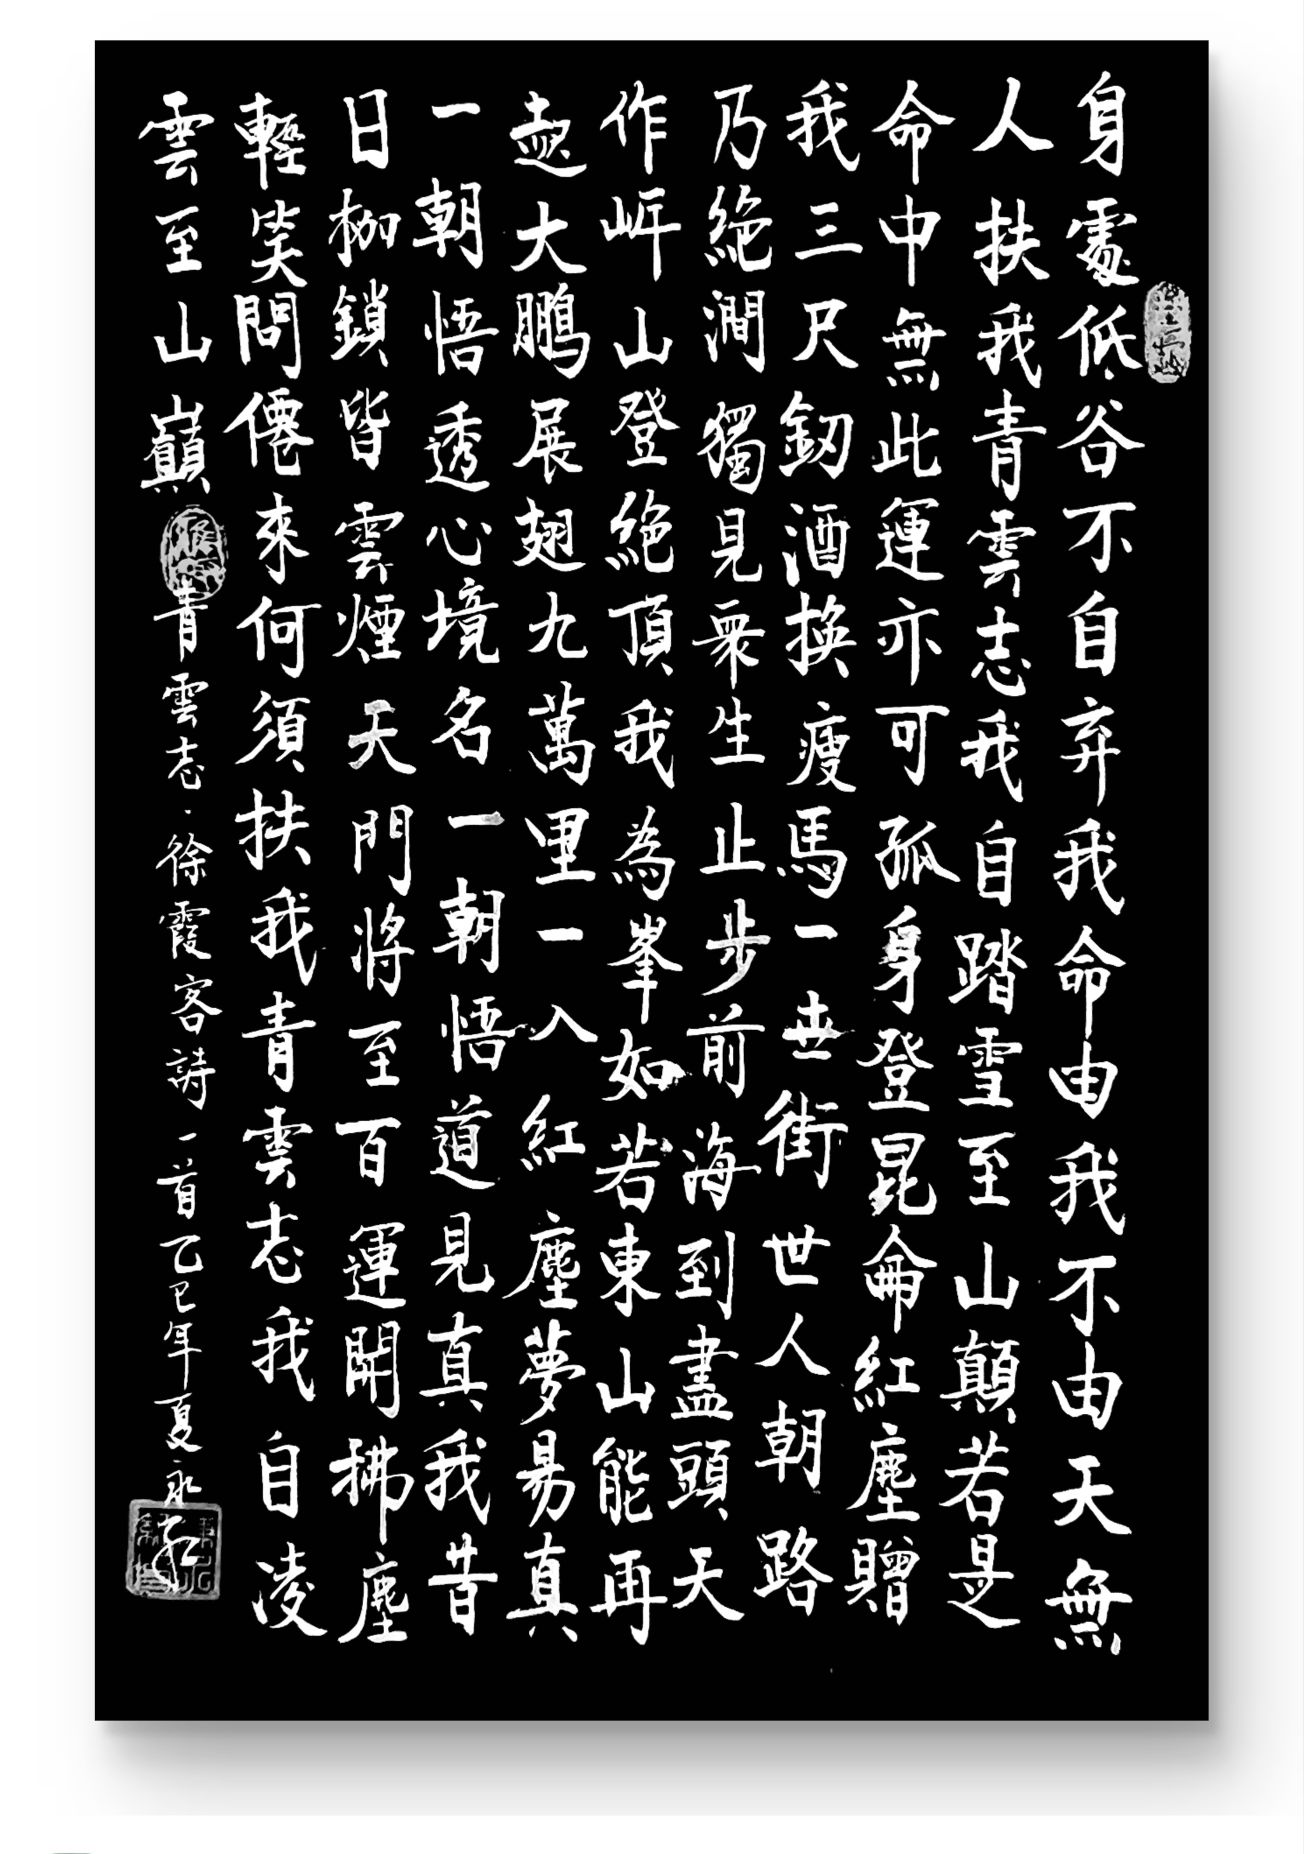 身處低谷不自弃我命由我不由天無
人扶我青雲志我自踏雪至山顛若是
命中無此運亦可孤身登昆侖紅塵贈
我三尺釰酒換瘦馬一世街世人朝路
乃絕澗獨見衆生止步前海到盡頭天
作岍山登絕頂我為峯如若東山能再
起大鵬展翅九萬里一入紅塵夢易真
一朝悟透心境名一朝悟道見真我昔
日枷鎖皆雲煙天門將至百運開拂塵
輕笑問僊來何須扶我青雲志我自凌
雲至山巔
青雲志·徐霞客詩一首乙巳年夏永